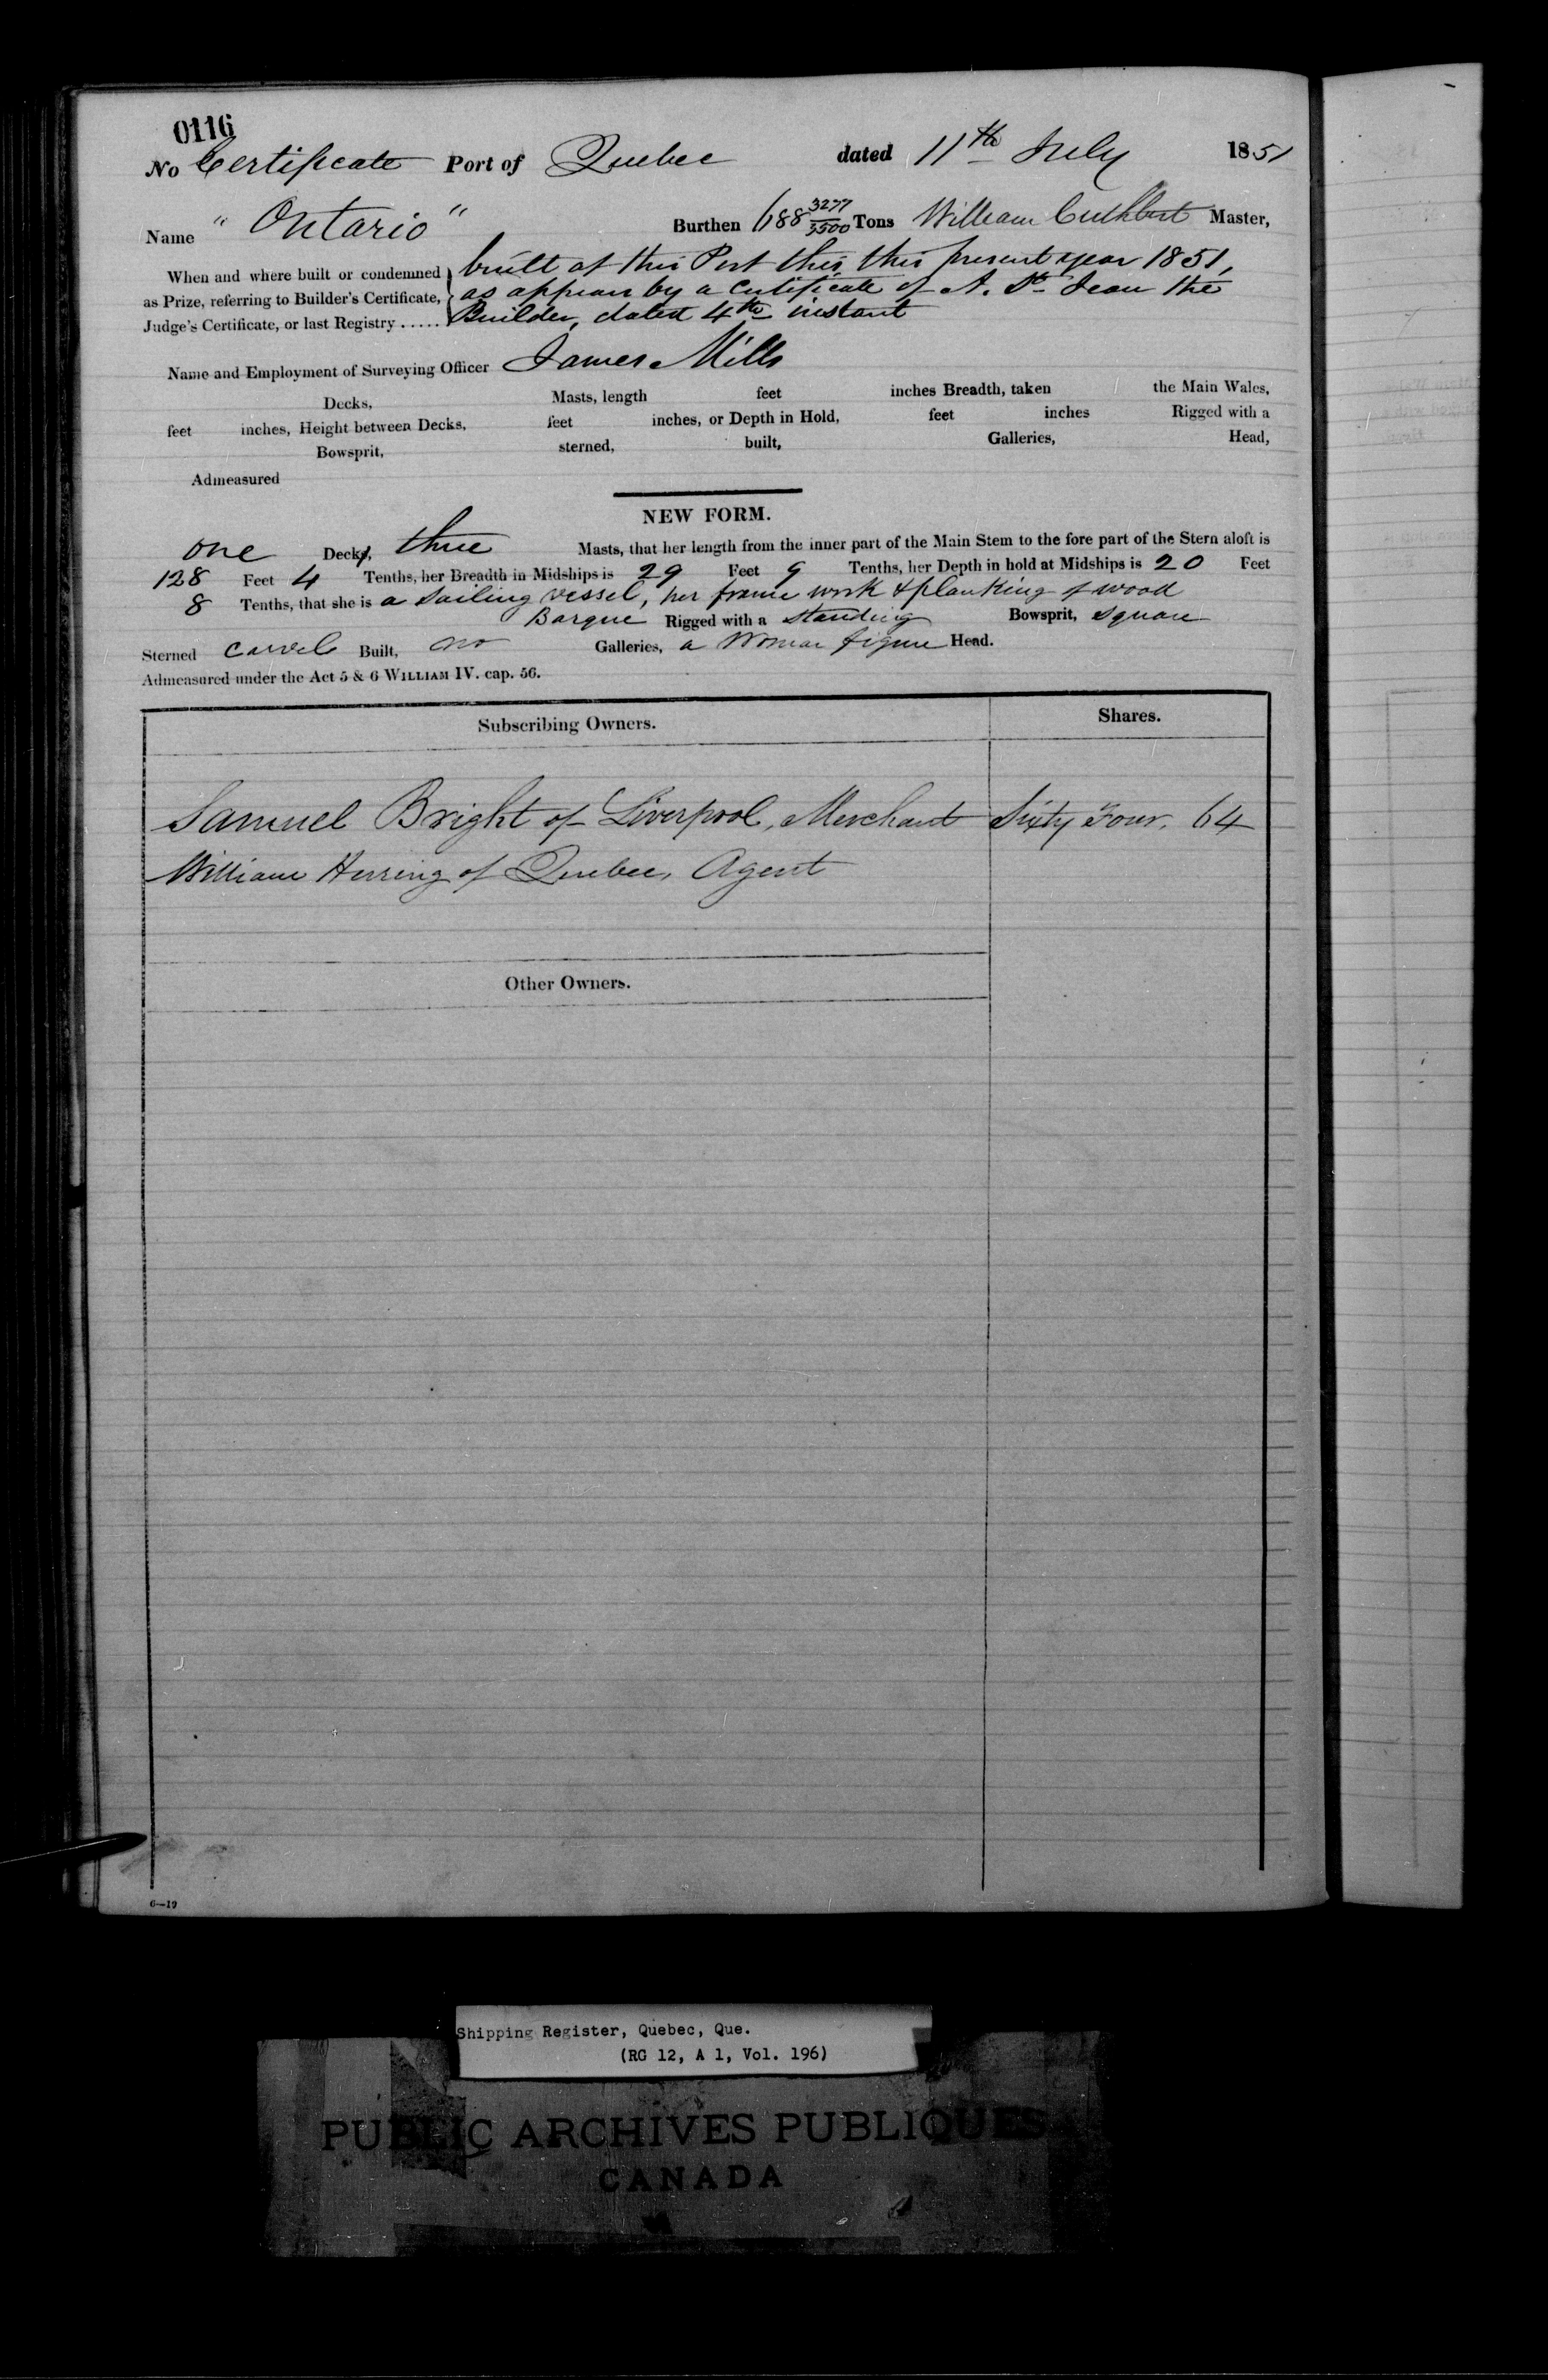 0116
No Certificate Port of Quebec dated 11th July 1851
Name "Ontario" Burthen 688 3277/3500 Tons William Cuthbert Master,
When and where built or condemned as Prize, referring to Builder's Certificate, Judge's Certificate, or last Registry .....
built at this Port this, this present year 1851,
as appears by a Certificate of A. St. Jean the
Builder, dated 4th instant
Name and Employment of Surveying Officer James Mills
Decks, Masts, length feet inches Breadth, taken the Main Wales,
feet inches, Height between Decks, feet inches, or Depth in Hold, feet inches Rigged with a
Bowsprit, sterned, built, Galleries, Head,
Admeasured
NEW FORM.
one Deck, three Masts, that her length from the inner part of the Main Stem to the fore part of the Stern aloft is
128 Feet 4 Tenths, her Breadth in Midships is 29 Feet 9 Tenths, her Depth in hold at Midships is 20 Feet
8 Tenths, that she is a Sailing vessel, her frame work & planking of wood
Barque Rigged with a standing Bowsprit, square
Sterned carvel Built, no Galleries, a Woman figure Head.
Admeasured under the Act 5 & 6 WILLIAM IV. cap. 56.
Subscribing Owners. Shares.
Samuel Bright of Liverpool, Merchant Sixty Four. 64
William Herring of Quebec, Agent
Other Owners.
6—19
Shipping Register, Quebec, Que.
(RG 12, A 1, Vol. 196)
PUBLIC ARCHIVES PUBLIQUES
CANADA